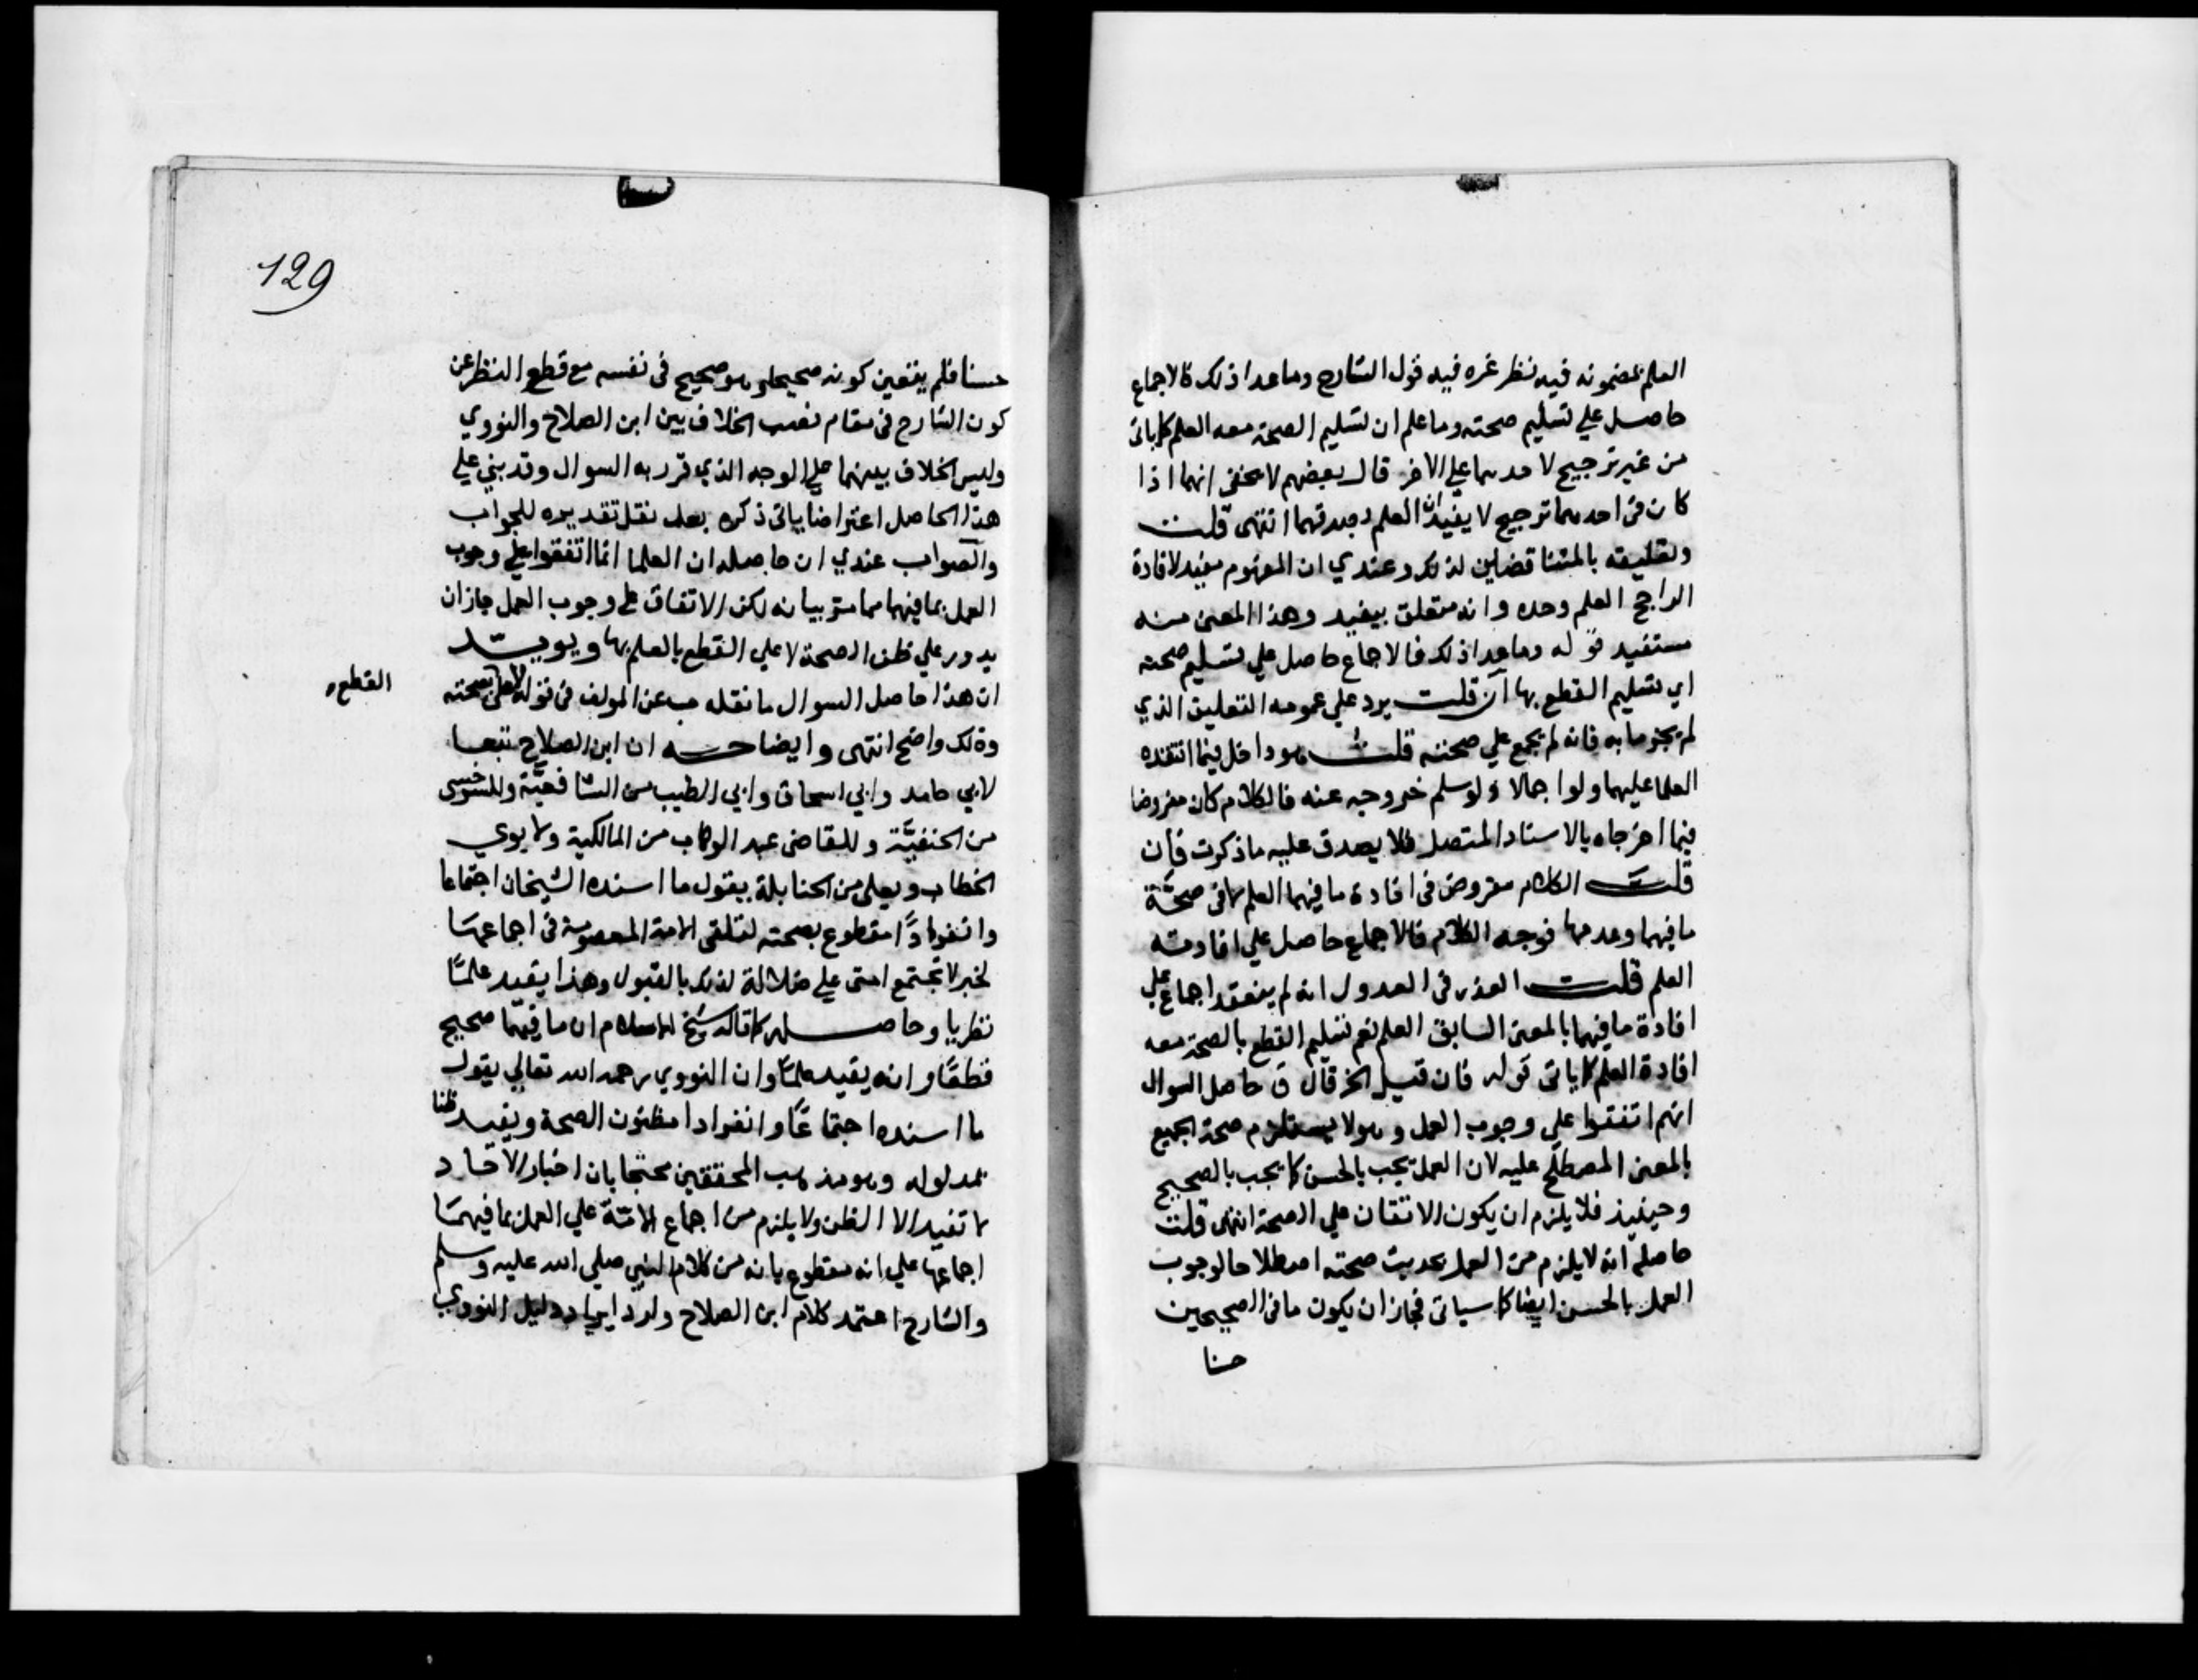 العلم بمضمونه فيه نظر غره فيه قول الشارح وماعدا ذلك فالاجماع
حاصل علي تسليم صحته وما علم ان تسليم الصحة معه العلم كما ياتى
من غير ترجيح لاحدهما علي الاخر قال بعضهم لا يخفى انهما اذا
كان فى احدهما ترجيح لا يفيدان العلم بصدقهما انتهى قلت
وتعليقه بالمتناقضين لذلك وعندي ان المفهوم مفيد لافادة
الراجح العلم وحده وانه متعلق بيفيد وهذا المعنى منه
مستفيد قوله وماعدا ذلك فالاجماع حاصل علي تسليم صحته
اي تسليم القطع بها ان قلت يرد علي عمومه التعليق الذي
لم يجزما به فانه لم يجمع علي صحته قلت هو داخل فيما انتقده
العلما عليهما ولو اجمالا ولو سلم خروجه عنه فالكلام كان مفروضا
فيما اخرجاه بالاسناد المتصل فلا يصدق عليه ما ذكرت فان
قلت الكلام مفروض فى افادة ما فيهما العلم لا فى صحة
ما فيهما وعدمها فوجه الكلام فالاجماع حاصل علي افادته
العلم قلت العذر فى العدول انه لم ينعقد اجماع علي
افادة ما فيهما بالمعنى السابق العلم نعم تسليم القطع بالصحة معه
افادة العلم كما ياتى قوله فان قيل الخ قال ق حاصل السوال
انهم اتفقوا علي وجوب العمل وهو لا يستلزم صحة الجميع
بالمعنى المصطلح عليه لان العمل يجب بالحسن كما يجب بالصحيح
وحينيذ فلا يلزم ان يكون الاتفاق علي الصحة انتهى قلت
حاصله انه لا يلزم من العمل بحديث صحته اصطلاحا لوجوب
العمل بالحسن ايضا كما سياتى فجاز ان يكون ما فى الصحيحين
حسنا
129
حسنا فلم يتعين كونه صحيحا وهو صحيح فى نفسه مع قطع النظر عن
كون الشارح فى مقام نصب الخلاف بين ابن الصلاح والنووي
وليس الخلاف بينهما علي الوجه الذي قرر به السوال وقد بني علي
هذا الحاصل اعتراضا ياتى ذكره بعد نقل تقديره للجواب
والصواب عندي ان حاصله ان العلما انما اتفقوا علي وجوب
العمل بما فيهما مما مر بيانه لكن الاتفاق علي وجوب العمل جاز ان
يدور علي ظن الصحة لا علي القطع بالعلم بها ويويد
ان هذا حاصل السوال ما نقله عن المولف فى قوله لا علي بصحته
القطع
وذلك واضح انتهى وايضاحه ان ابن الصلاح تبعا
لابي حامد وابي اسحاق وابي الطيب من الشافعية وللسرخسى
من الحنفية وللقاضى عبد الوهاب من المالكية ولابوي
الخطاب ويعلى من الحنابلة يقول ما اسنده الشيخان اجتماعا
وانفرادا مقطوع بصحته لتلقى الامة المعصومة فى اجماعها
لخبر لا تجتمع امتى علي ضلالة لذلك بالقبول وهذا يفيد علما
نظريا وحاصله كما قاله شيخ الاسلام ان ما فيهما صحيح
قطعا وانه يفيد علما وان النووي رحمه الله تعالي يقول
ما اسنده اجتماعا وانفرادا مظنون الصحة ويفيد ظنا
بمدلوله وهو مذهب المحققين محتجا بان اخبار الاحاد
لا تفيد الا الظن ولا يلزم من اجماع الامة علي العمل بما فيهما
اجماعها علي انه مقطوع بانه من كلام النبي صلي الله عليه وسلم
والشارح اعتمد كلام ابن الصلاح واورد ايراد دليل النووي